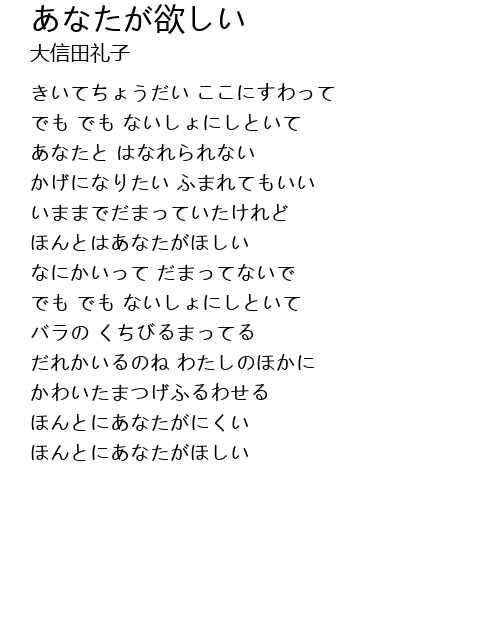 あなたが欲しい
大信田礼子
きいてちょうだい ここにすわって
でも でも ないしょにしといて
あなたと はなれられない
かげになりたい ふまれてもいい
いままでだまっていたけれど
ほんとはあなたがほしい
なにかいって だまってないで
でも でも ないしょにしといて
バラの くちびるまってる
だれかいるのね わたしのほかに
かわいたまつげふるわせる
ほんとにあなたがにくい
ほんとにあなたがほしい